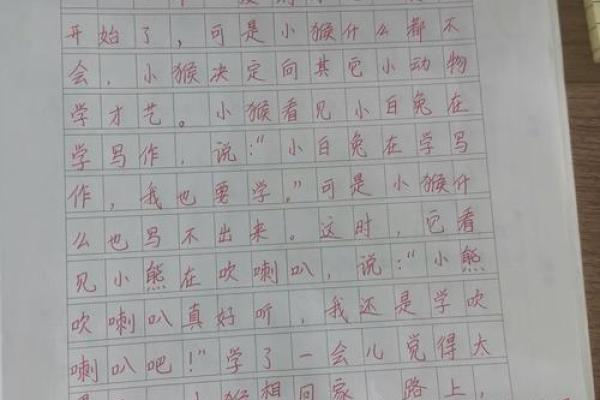 开始了，可是小猴什么都不
会，小猴决定向其它小动物
学才艺。小猴看见小白兔在
学写作，说：“小白兔在学写
作，我也要学，”可是小猴什
么也写不出来。这时，它看
见小熊在吹喇叭，说：“小熊
吹喇叭真好听，我还是学吹
喇叭吧！”学了一会儿觉得太
小猴想回家，路上，